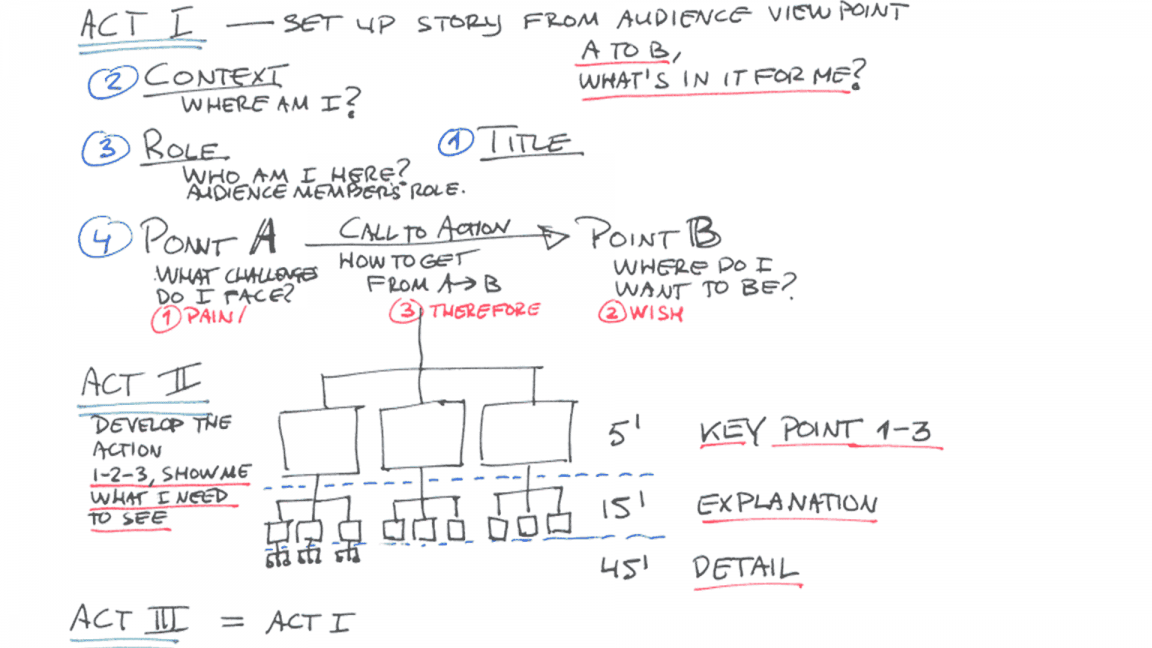 ACT I — SET UP STORY FROM AUDIENCE VIEWPOINT
A TO B,
WHAT'S IN IT FOR ME?
② CONTEXT
WHERE AM I?
③ ROLE
WHO AM I HERE?
AUDIENCE MEMBER'S ROLE.
① TITLE
④ POINT A
CALL TO ACTION
POINT B
WHAT CHALLENGES
DO I FACE?
HOW TO GET
FROM A→B
WHERE DO I
WANT TO BE?
① PAIN/
③ THEREFORE
② WISH
ACT II
DEVELOP THE
ACTION
1-2-3, SHOW ME
WHAT I NEED
TO SEE
5' KEY POINT 1-3
15' EXPLANATION
45' DETAIL
ACT III = ACT I